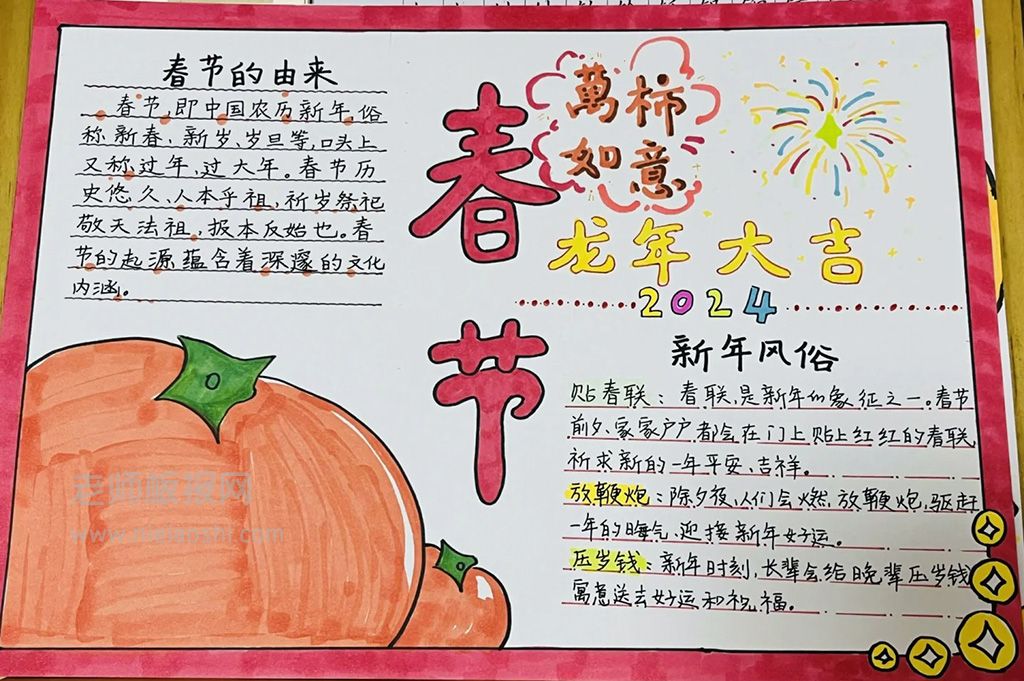 春节的由来
春节,即中国农历新年,俗
称新春、新岁、岁旦等,口头上
又称过年、过大年。春节历
史悠久、人本乎祖,祈岁祭祀
敬天法祖,报本反始也。春
节的起源蕴含着深邃的文化
内涵。
春节
萬柿
如意
龙年大吉
2024
新年风俗
贴春联:春联,是新年的象征之一。春节
前夕、家家户户都会在门上贴上红红的春联,
祈求新的一年平安、吉祥。
放鞭炮:除夕夜,人们会燃放鞭炮,驱赶
一年的晦气,迎接新年好运。
压岁钱:新年时刻,长辈会给晚辈压岁钱
寓意送去好运和祝福。
老师板报网